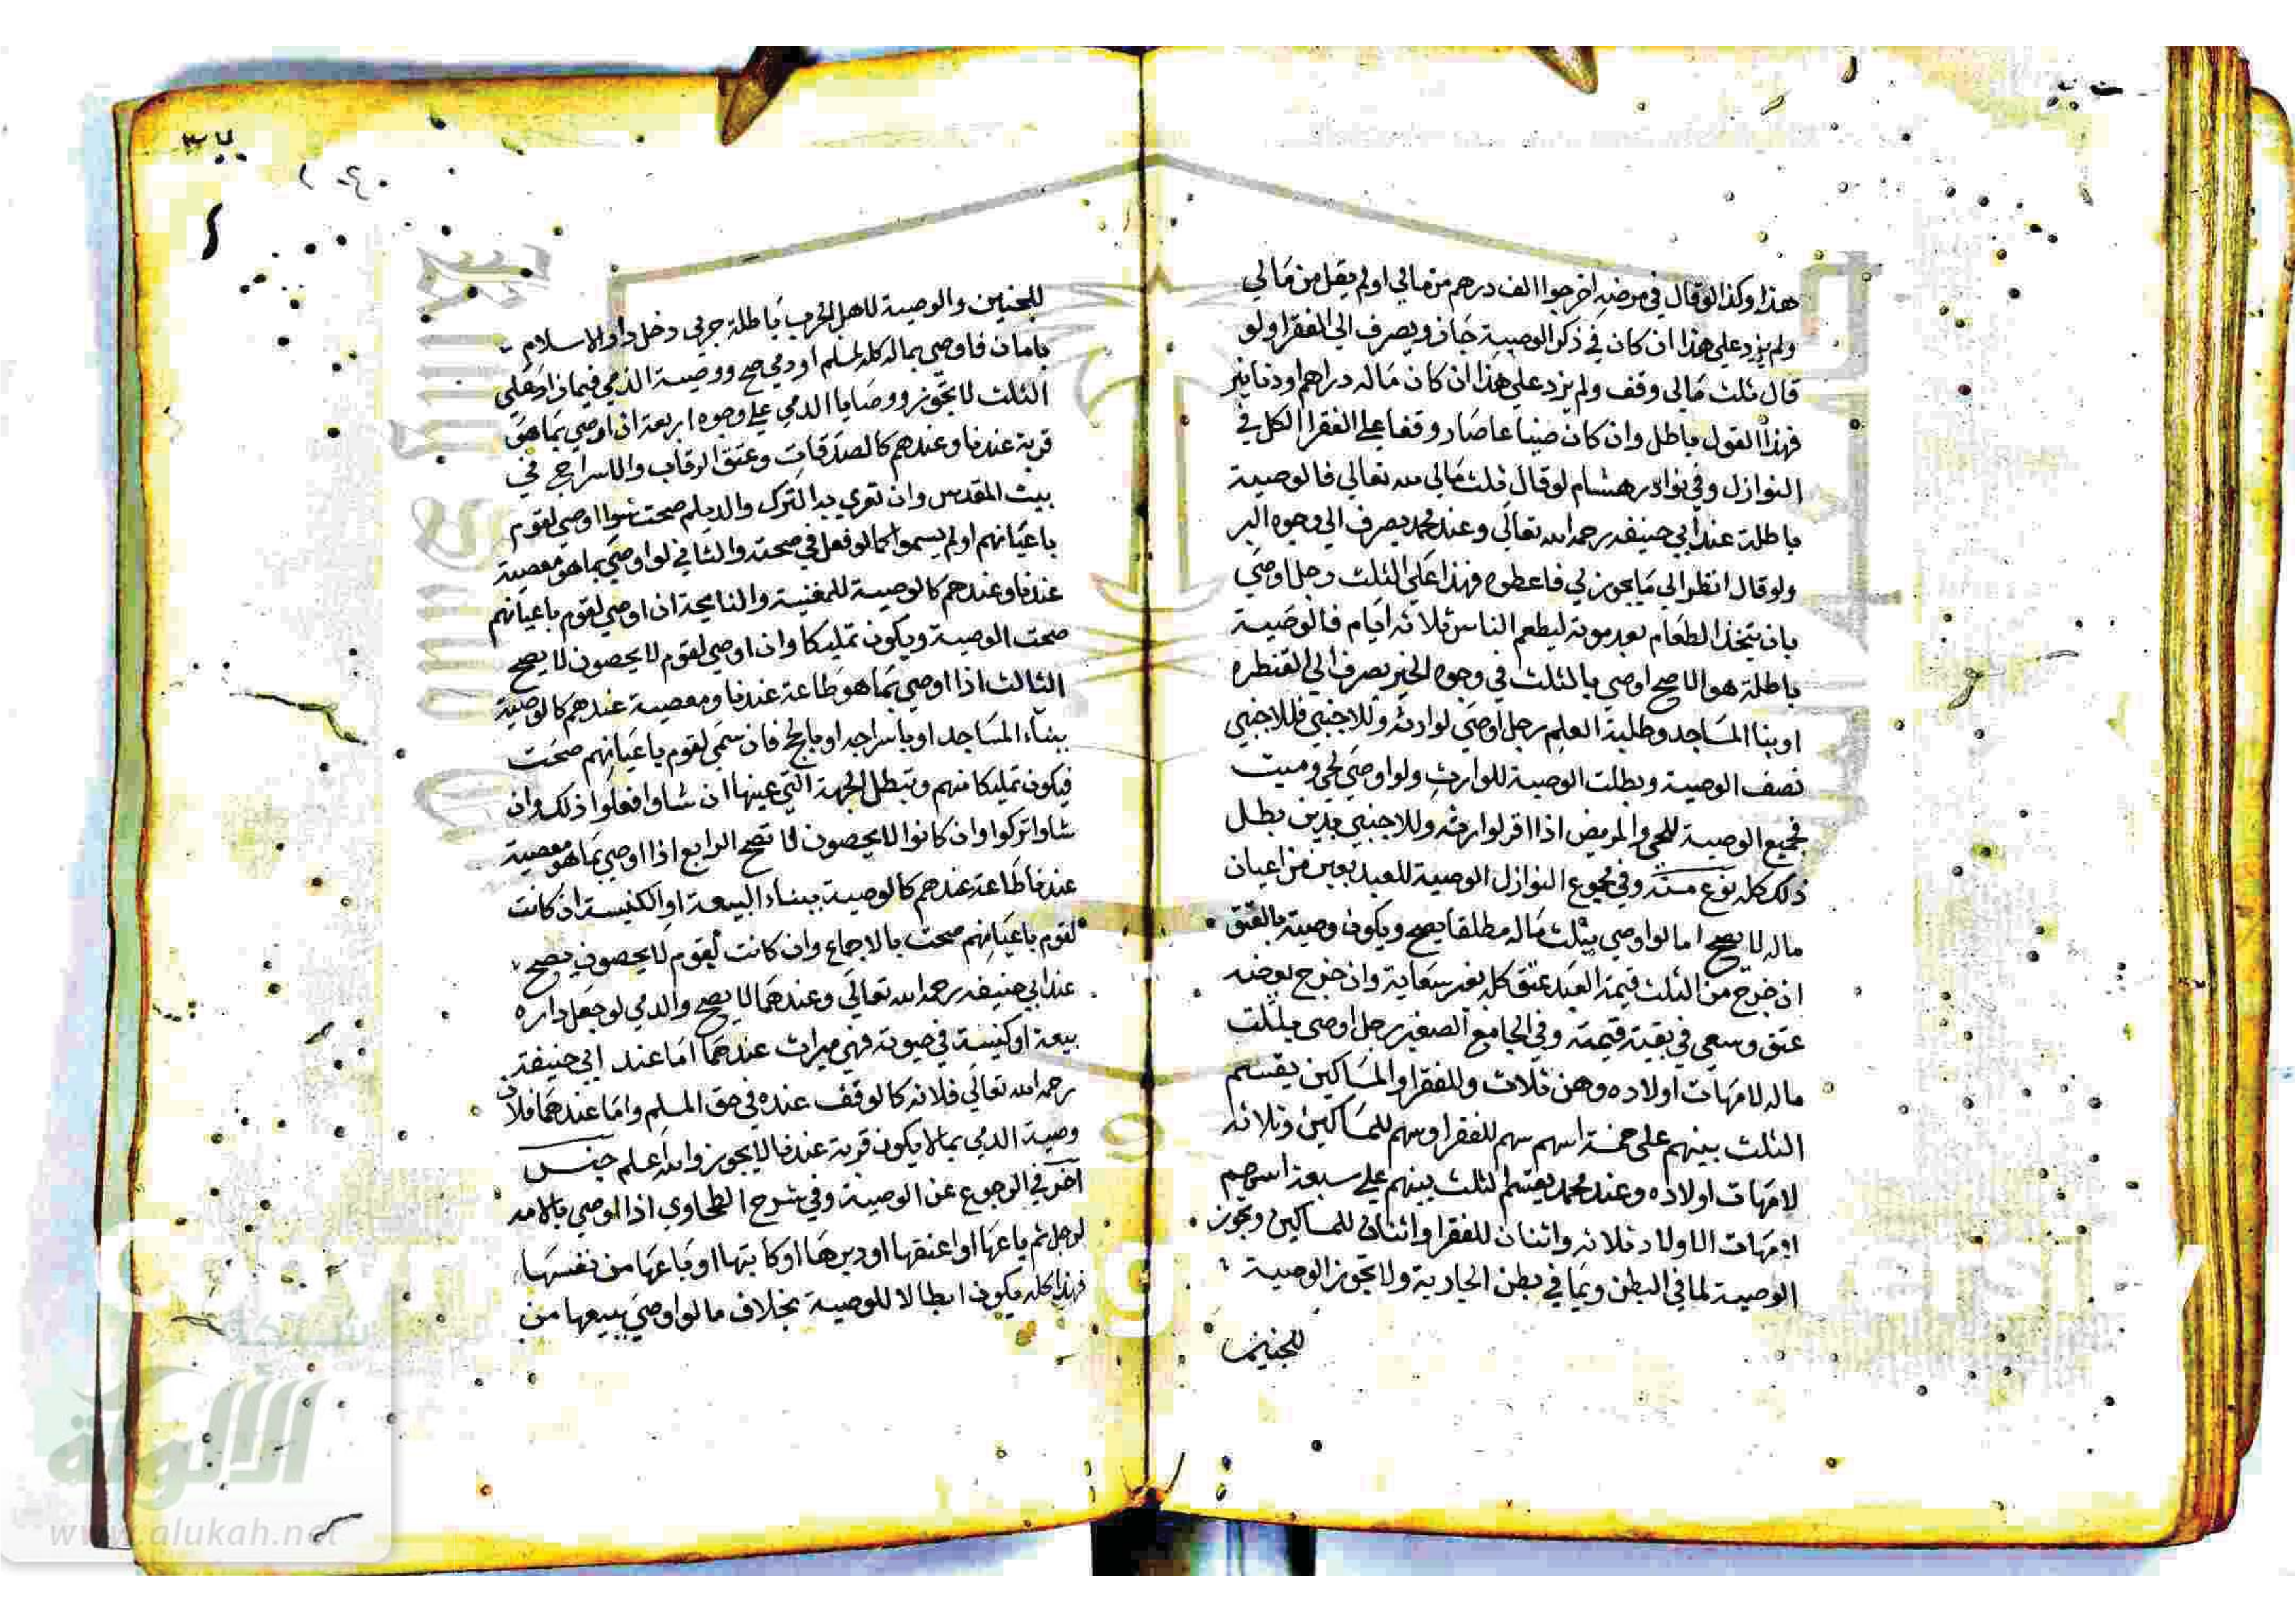 هذا وكذا لو قال في مرضه اخرجوا الف درهم من مالي او لم يقل من مالي
ولم يزد على هذا ان كان في ذكر الوصية جاز ويصرف الى الفقرا ولو
قال ثلث مالي وقف ولم يزد على هذا ان كان ماله دراهم او دنانير
فهذا القول باطل وان كان ضياعا صار وقفا على الفقرا الكل في
النوازل وفي نوادر هشام لو قال ثلث مالي لله تعالى فالوصية
باطلة عند ابي حنيفه رحمه الله تعالى وعند محمد يصرف الى وجوه البر
ولو قال انظر الى ما يجوز لي فاعطوه فهذا على الثلث رجل اوصى
بان يتخذ الطعام بعد موته ليطعم الناس ثلاثه ايام فالوصية
باطلة هو الاصح اوصى بالثلث في وجوه الخير يصرف الى القنطره
او بنا المساجد وطلبة العلم رجل اوصى لوارثه وللاجنبي فللاجنبي
نصف الوصية وبطلت الوصية للوارث ولو اوصى لحي وميت
فجميع الوصية للحي والمريض اذا اقر لوارثه وللاجنبي بدين بطل
ذلك كله نوع منه وفي مجموع النوازل الوصية للعبد بعين من اعيان
ماله لا يصح اما لو اوصى بثلث ماله مطلقا يصح ويكون وصية بالعتق
ان خرج من الثلث قيمة العبد عتق كله بغير سعاية وان خرج بعضه
عتق وسعى في بقية قيمته وفي الجامع الصغير رجل اوصى بثلث
ماله لامهات اولاده وهن ثلاث وللفقرا والمساكين يقسم
الثلث بينهم على خمسة اسهم سهم للفقرا وسهم للمساكين وثلاثه
لامهات اولاده وعند محمد يقسم الثلث بينهم على سبعة اسهم
امهات الاولاد ثلاثه واثنان للفقرا واثنان للمساكين وتجوز
الوصية لما في البطن وبما في بطن الجارية ولا تجوز الوصية
للجنين
للجنين والوصية لاهل الحرب باطلة حربي دخل دار الاسلام
بامان فاوصى بماله كله لمسلم او ذمي صح ووصية الذمي فيما زاد على
الثلث لا تجوز ووصايا الذمي على وجوه اربعة ان اوصى بما هو
قربة عندنا وعندهم كالصدقات وعتق الرقاب والاسراج في
بيت المقدس وان تغزي به الترك والديلم صحت سوا اوصى لقوم
باعيانهم او لم يسموا كما لو فعل في صحته والثاني لو اوصى بما هو معصية
عندنا وعندهم كالوصية للمغنية والنايحة ان اوصى لقوم باعيانهم
صحت الوصية ويكون تمليكا وان اوصى لقوم لا يحصون لا يصح
الثالث اذا اوصى بما هو طاعة عندنا ومعصية عندهم كالوصية
ببناء المساجد او باسراجه او بالحج فان سمى لقوم باعيانهم صحت
فيكون تمليكا منهم وتبطل الجهة التي عينها ان شاوا فعلوا ذلك وان
شاوا تركوا وان كانوا لا يحصون لا تصح الرابع اذا اوصى بما هو معصية
عندنا طاعة عندهم كالوصية ببناء البيعة او الكنيسة ان كانت
لقوم باعيانهم صحت بالاجماع وان كانت لقوم لا يحصون يصح
عند ابي حنيفه رحمه الله تعالى وعندهما لا يصح والذمي لو جعل داره
بيعة او كنيسة في حيوته فهي ميراث عندهما اما عند ابي حنيفة
رحمه الله تعالى فلانه كالوقف عنده في حق المسلم واما عندهما فلان
وصية الذمي بما لا يكون قربة عندنا لا يجوز والله اعلم جنس
آخر في الرجوع عن الوصية وفي شرح الطحاوي اذا اوصى بالامه
لرجل ثم باعها او اعتقها او دبرها او كاتبها او باعها من نفسها
فهذا كله يكون ابطالا للوصية بخلاف ما لو اوصى ببيعها من
شبكة
الألوكة
www.alukah.net